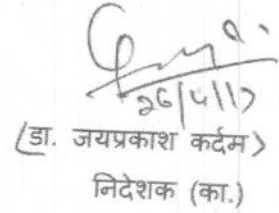 26/4/17
(डा. जयप्रकाश कर्दम)
निदेशक (का.)